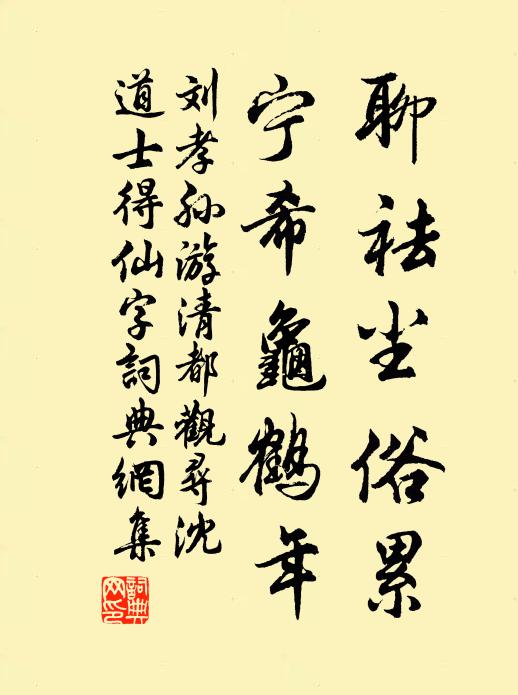 聊祛尘俗累
宁希龜鹤年
刘孝孙游清都觀尋沈
道士得仙字詞典網集
詞典网印